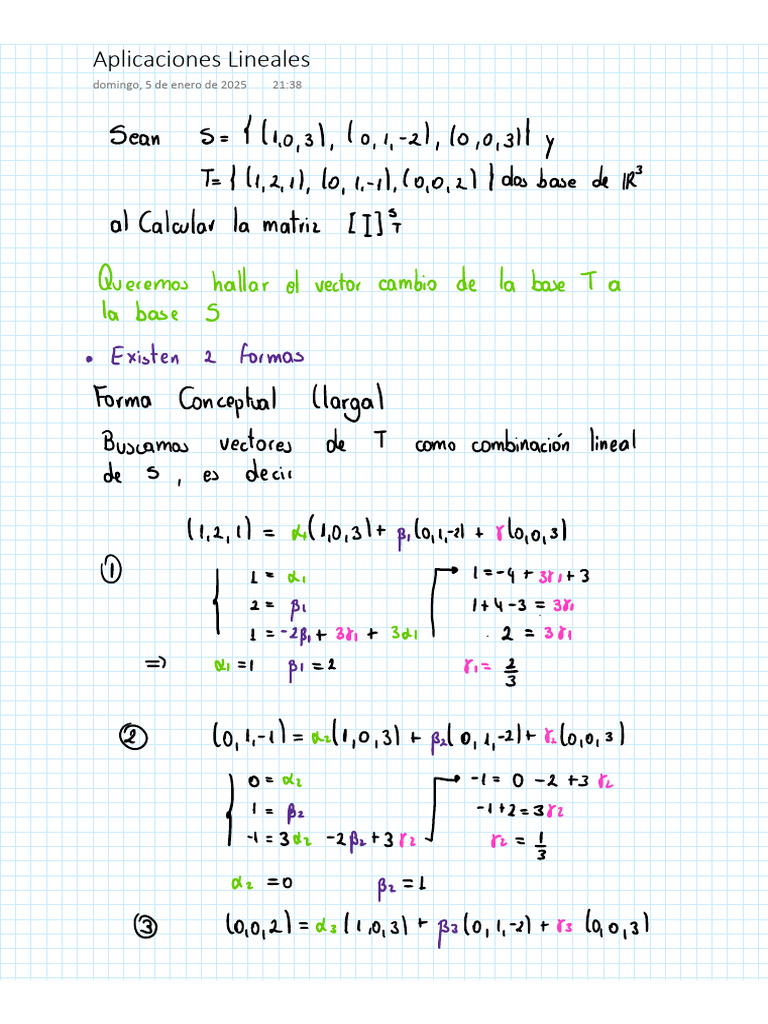 Aplicaciones Lineales
domingo, 5 de enero de 2025 21:38
Sean S = { (1,0,3), (0,1,-2), (0,0,3)} y
T= { (1,2,1), (0,1,-1), (0,0,2) } dos base de ℝ³
al Calcular la matriz [I]ˢ_T
Queremos hallar el vector cambio de la base T a
la base S
• Existen 2 formas
Forma Conceptual (larga)
Buscamos vectores de T como combinación lineal
de S, es decir
(1,2,1) = α₁(1,0,3)+ β₁(0,1,-2) + γ(0,0,3)
① 1 = α₁ 1=-4 + 3γ₁+3
2 = β₁ 1+4-3 = 3γ₁
1 = -2β₁+ 3γ₁ + 3α₁ 2 = 3γ₁
=> α₁ =1 β₁ =2 γ₁ = 2/3
② (0,1,-1) = α₂(1,0,3) + β₂(0,1,-2)+ γ₂(0,0,3)
0 = α₂ -1 = 0 -2 +3 γ₂
1 = β₂ -1+2=3γ₂
-1 = 3α₂ -2β₂+3γ₂ γ₂ = 1/3
α₂ =0 β₂ =1
③ (0,0,2) = α₃ (1,0,3) + β₃(0,1,-2) + γ₃ (0,0,3)